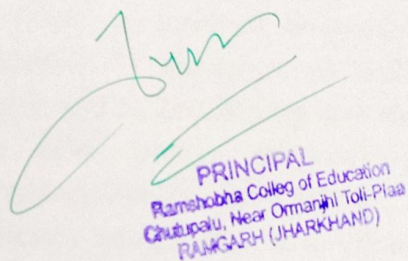 PRINCIPAL
Ramshobha Colleg of Education
Chutupalu, Near Ormanjhi Toll-Plaa
RAMGARH (JHARKHAND)